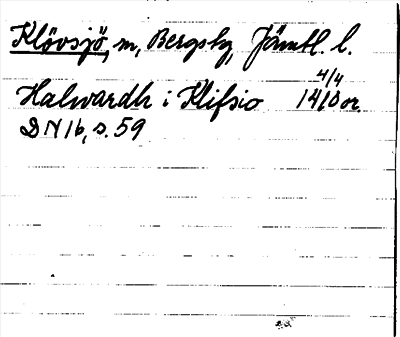 Klövsjö, sn, Bergsby, Jämtl. l.
4/4
Halwardh i Klifsio 1410 or.
DN 16, s. 59